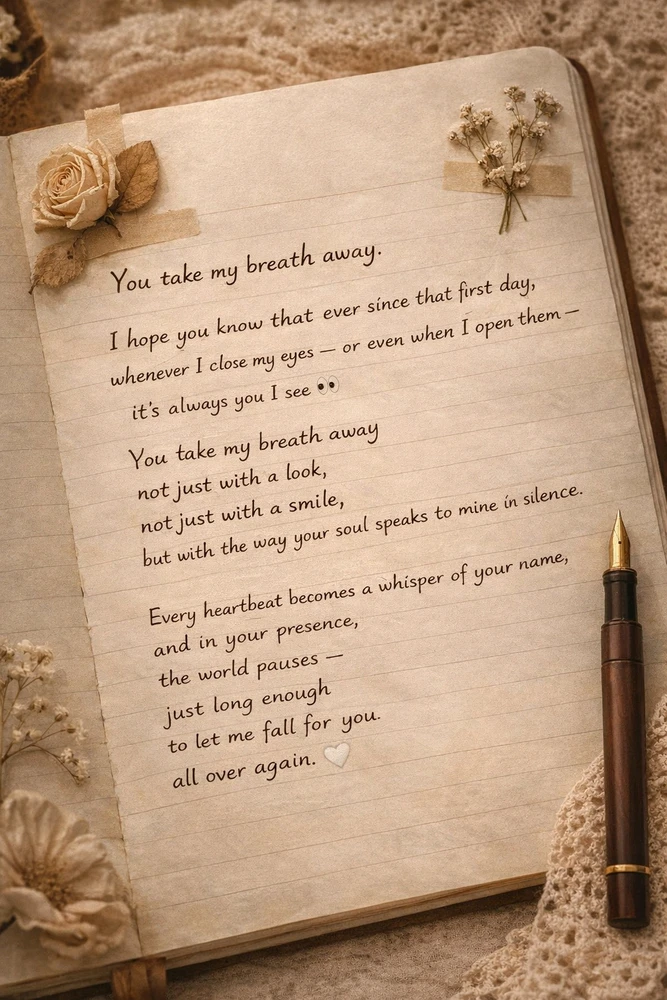 You take my breath away.
I hope you know that ever since that first day,
whenever I close my eyes — or even when I open them —
it's always you I see 👀
You take my breath away
not just with a look,
not just with a smile,
but with the way your soul speaks to mine in silence.
Every heartbeat becomes a whisper of your name,
and in your presence,
the world pauses —
just long enough
to let me fall for you.
all over again. 🤍